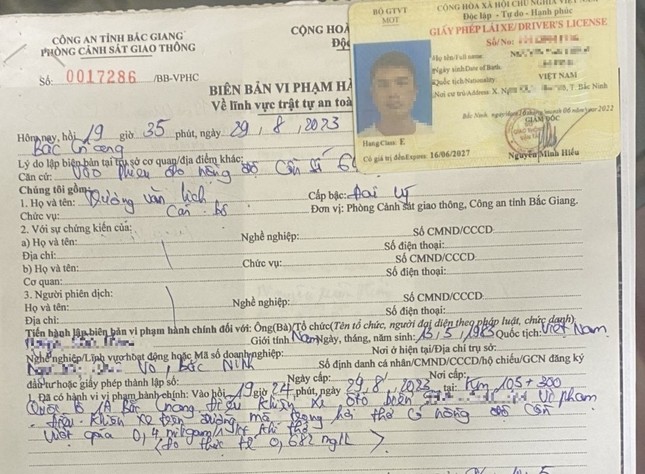 CÔNG AN TỈNH BẮC GIANG
PHÒNG CẢNH SÁT GIAO THÔNG
Số: 0017286 /BB-VPHC
CỘNG HOÀ
Độc
BIÊN BẢN VI PHẠM HÀ
Về lĩnh vực trật tự an toàn
BỘ GTVT
MOT
CỘNG HÒA XÃ HỘI CHỦ NGHĨA VIỆT
Độc lập - Tự do - Hạnh phúc
GIẤY PHÉP LÁI XE/DRIVER'S LICENSE
Số/No:
Họ tên/Full name:
Ngày sinh/Date of Birth:
Quốc tịch/Nationality VIỆT NAM
Nơi cư trú/Address: X. T. Bắc Ninh
Bắc Ninh, 2022
GIÁM ĐỐC
Hạng/Class: E
Có giá trị đến/Expires: 16/06/2027
Nguyễn Minh Hiếu
Hôm nay, hồi 19 giờ 35 phút, ngày 29, 8, 2023
Bắc Giang
Lý do lập biên bản tại trụ sở cơ quan/địa điểm khác:
Căn cứ: Vào phiếu đo nồng độ Cồn số
Chúng tôi gồm:
1. Họ và tên: Dương văn lịch Cấp bậc: Đại úy
Chức vụ: Cán bộ Đơn vị: Phòng Cảnh sát giao thông, Công an tỉnh Bắc Giang.
2. Với sự chứng kiến của:
a) Họ và tên: Nghề nghiệp: Số CMND/CCCD
Địa chỉ: Số điện thoại:
b) Họ và tên: Chức vụ: Số CMND/CCCD
Cơ quan: Số điện thoại:
3. Người phiên dịch:
Họ và tên: Nghề nghiệp: Số CMND/CCCD
Địa chỉ: Số điện thoại:
Tiến hành lập biên bản vi phạm hành chính đối với: Ông(Bà)/Tổ chức(Tên tổ chức, người đại diện theo pháp luật, chức danh)
Giới tính Nam Ngày, tháng, năm sinh: 15, 5, 1983 Quốc tịch: Việt Nam
Nghề nghiệp/Lĩnh vực hoạt động hoặc Mã số doanh nghiệp: Nơi ở hiện tại/Địa chỉ trụ sở:
Võ, Bắc Ninh Số định danh cá nhân/CMND/CCCD/hộ chiếu/GCN đăng ký
đầu tư hoặc giấy phép thành lập số: Ngày cấp: Nơi cấp:
1. Đã có hành vi vi phạm hành chính: Vào hồi 19 giờ 24 phút, ngày 29, 8, 2023 tại: Km 105 + 300
Quốc lộ 1A Bắc Giang điều khiển xe ôtô biển Vi phạm
điều khiển xe trên đường mà trong hơi thở có nồng độ Cồn
vượt quá 0,4 miligam/1 lít khí thở
(đo thực tế 0,682 mg/L)